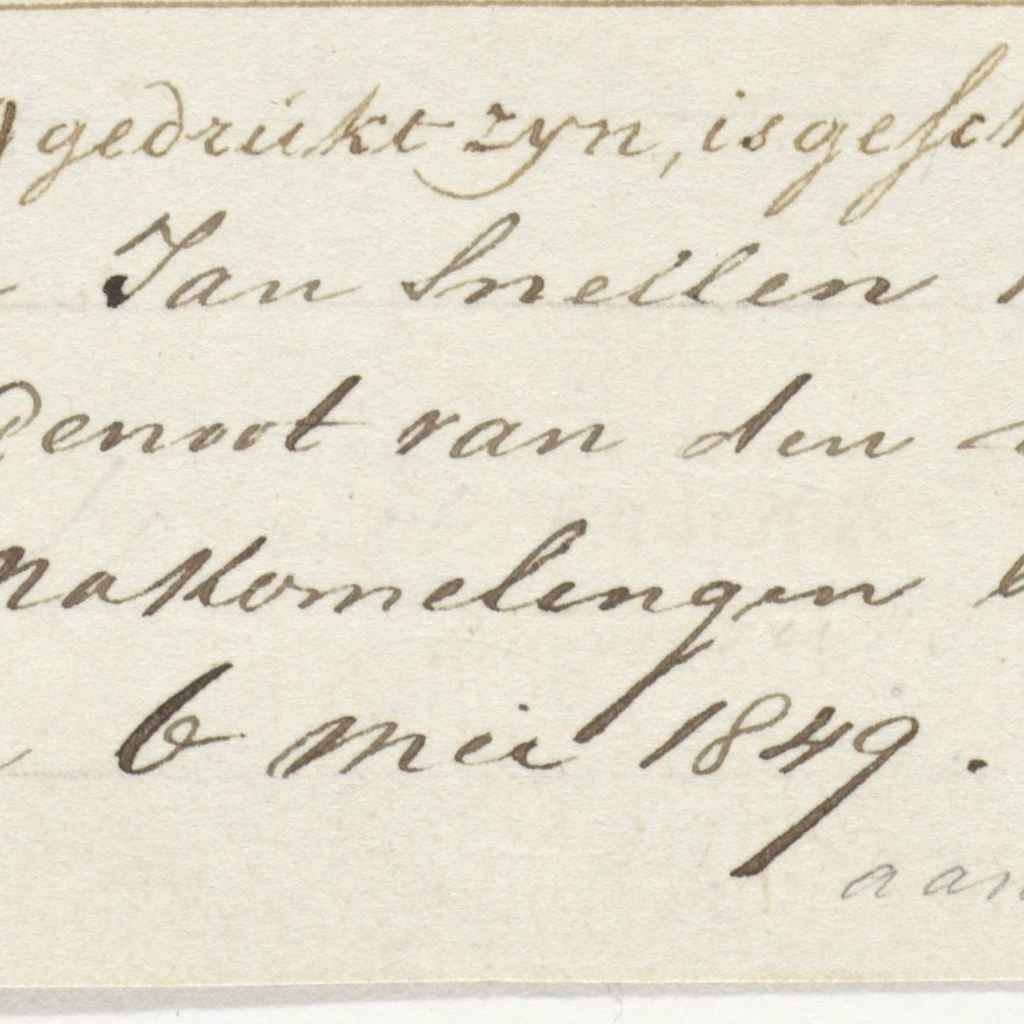 gedrukt zyn, is gesch
Jan Snellen
Genoot van den
Nakomelingen
6 Mei 1849.
aan